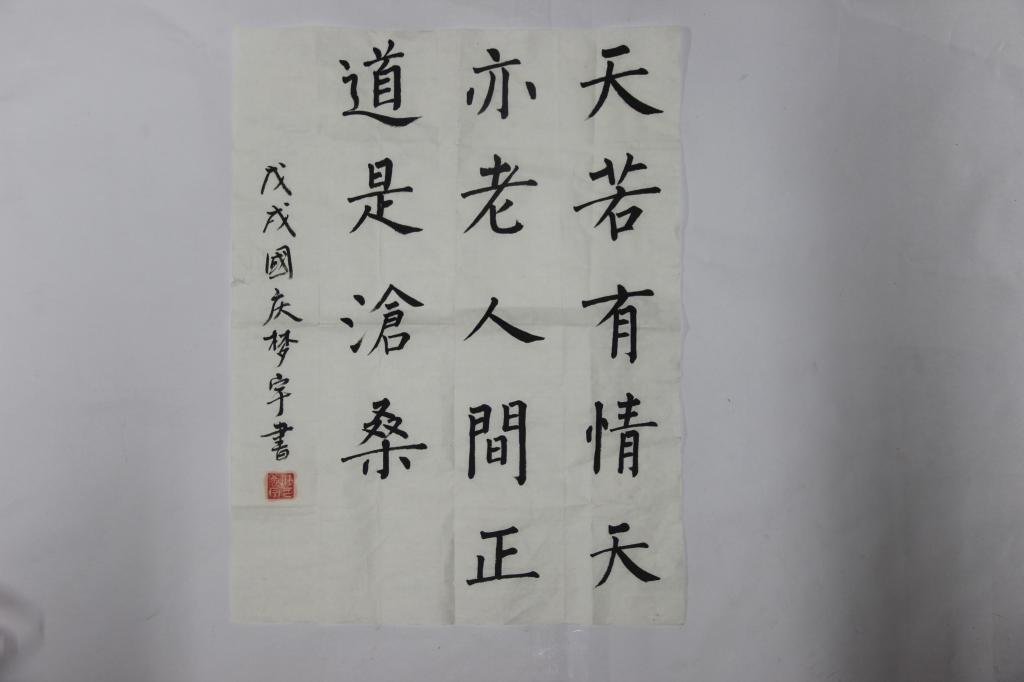 天若有情天
亦老人間正
道是滄桑
戊戌國庆梦宇書